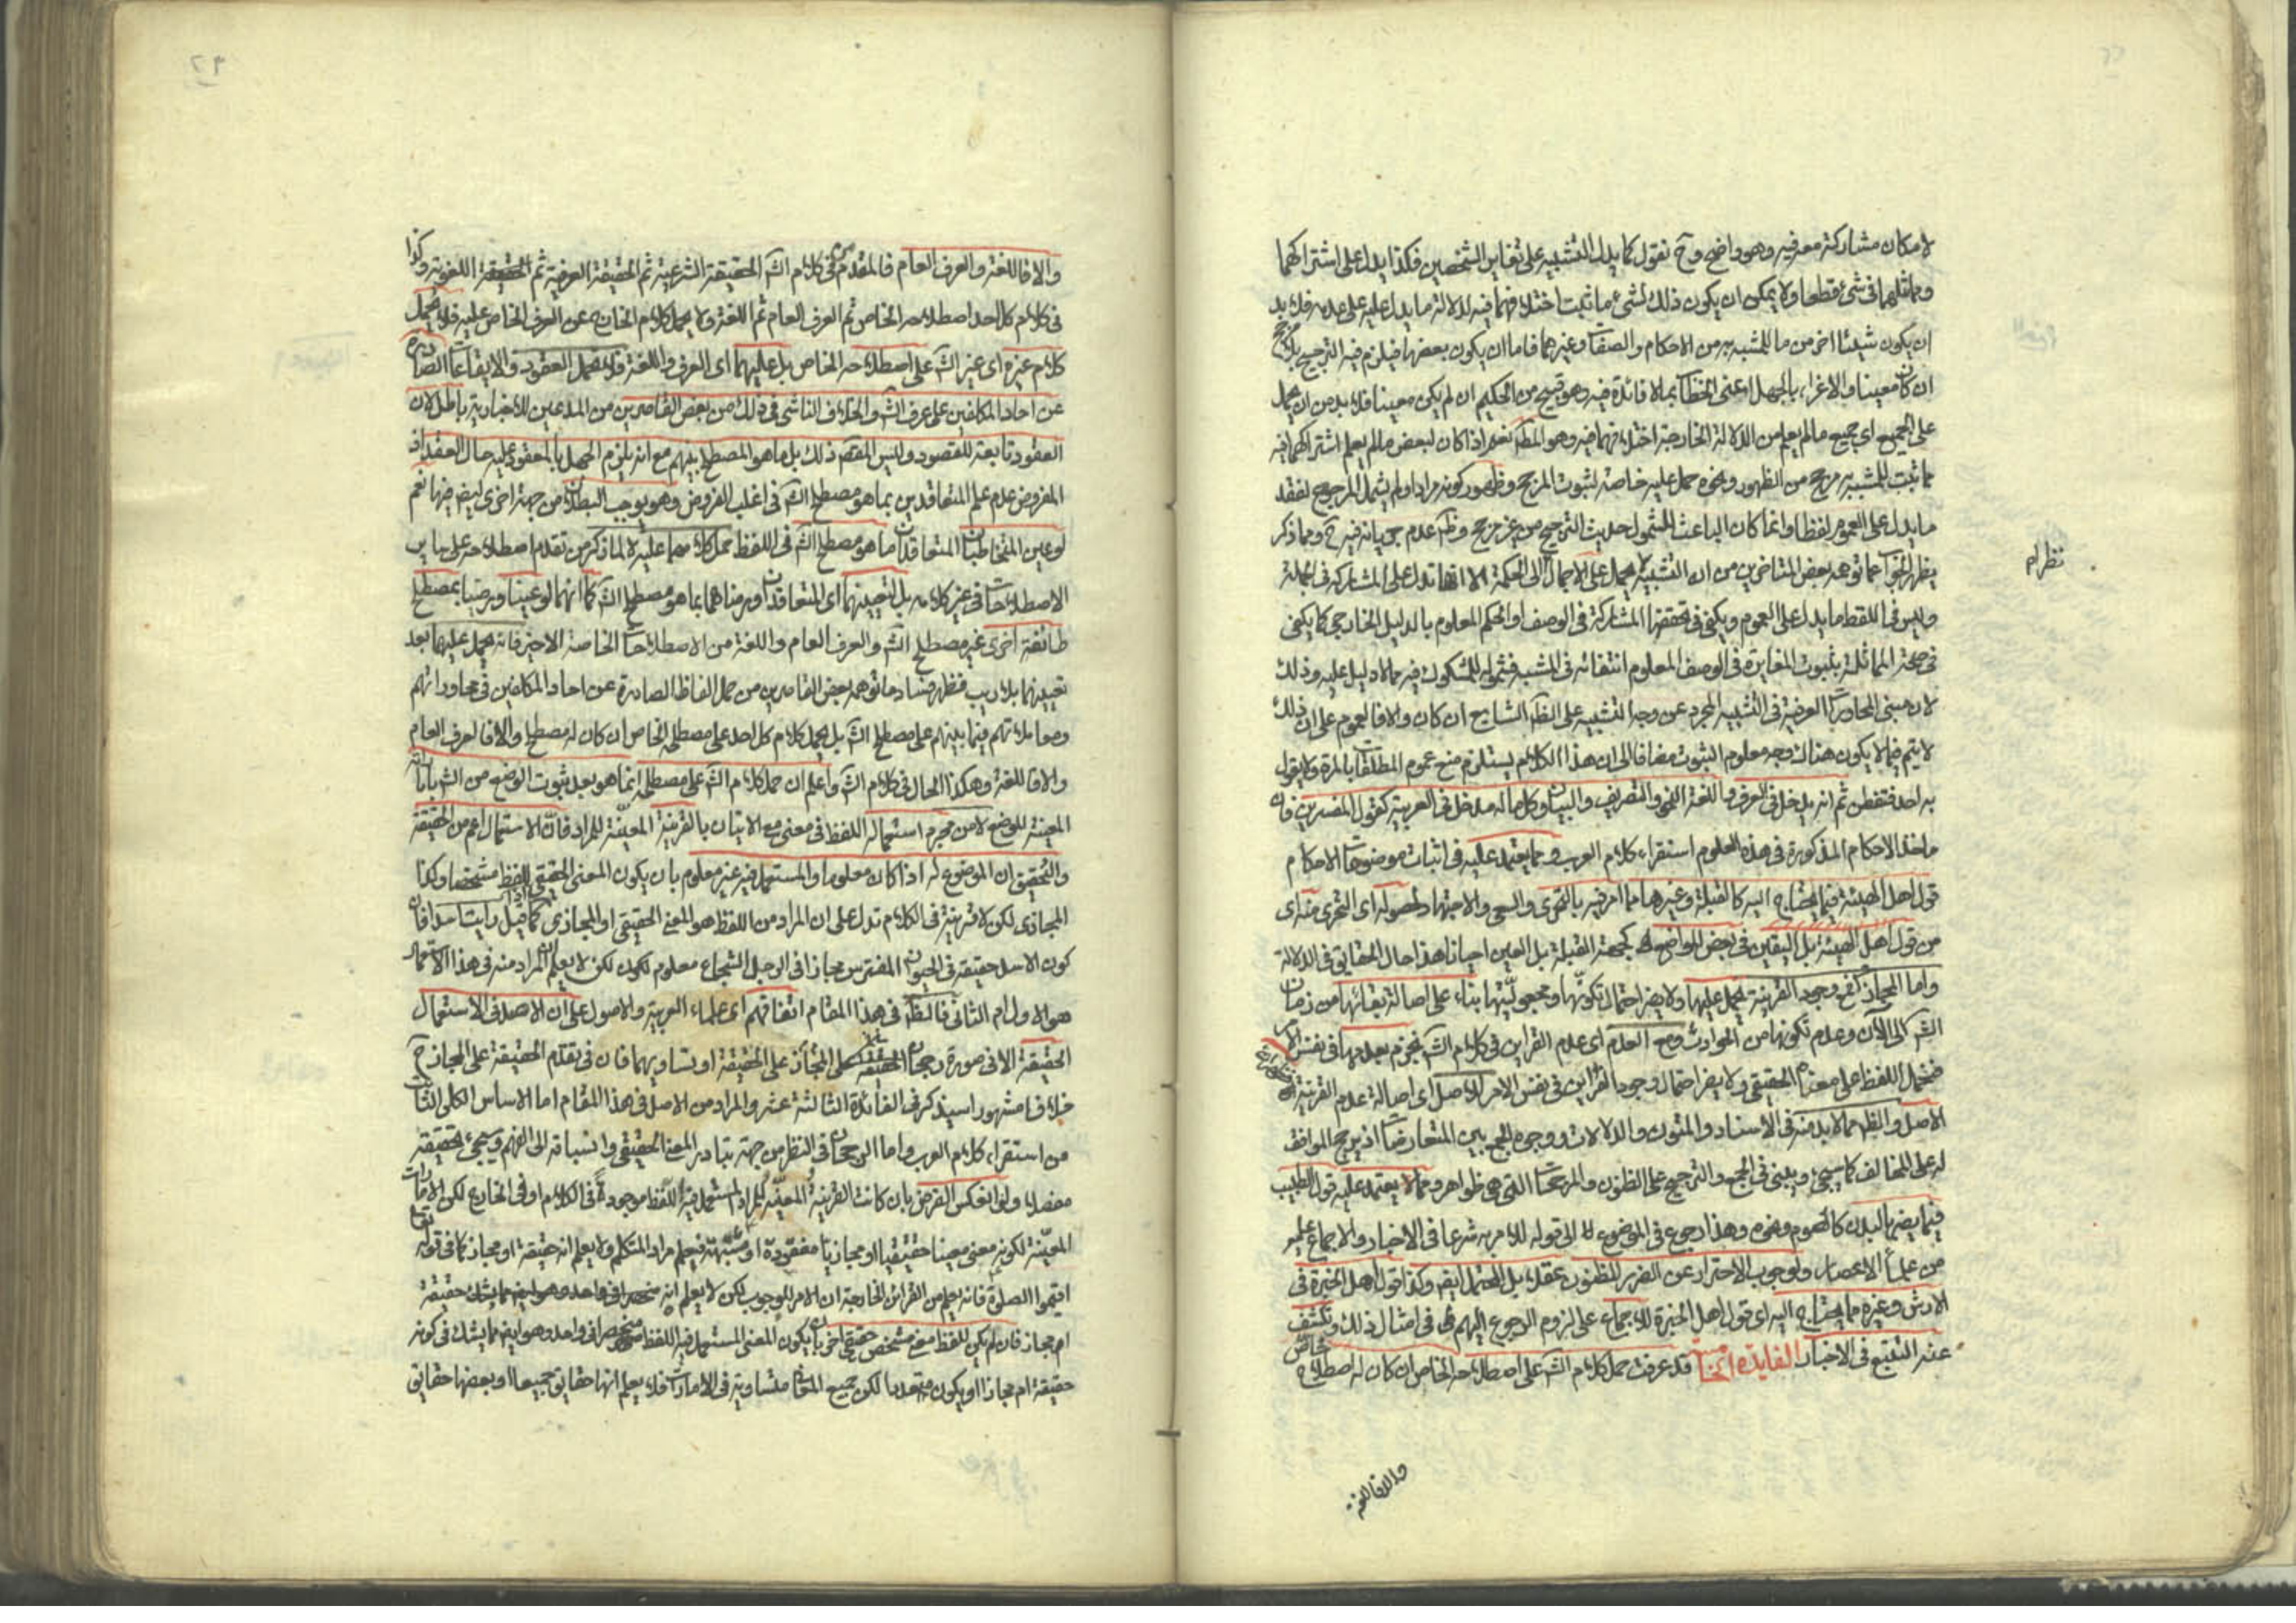 لامكان مشاركة معرفيه وهو واضح وح نقول كما يدل التشبيه على تغاير الشخصين فكذا يدل على اشتراكهما
ومماثلهما في شيء قطعا ولا يمكن ان يكون ذلك لشيء ما ثبت اختلافهما فيه لدلالة ما يدل عليه على عدمه فلا بد
ان يكون شيئا اخر من ما للمشبه به من الاحكام والصفات وغيرهما فاما ان يكون بعضها فيلزم فيه الترجيح بلا مرجح
ان كان معينا والاغراء بالجهل اعنى الخطاب بما لا فائدة فيه وهو قبيح من الحكيم ان لم يكن معينا فلا بد من ان يحمل
على الجميع اي جميع ما لم يعلم من الدلالة الخارجة اختلافهما فيه وهو المط نعم اذا كان لبعض ما لم يعلم اشتراكهما فيه
ما ثبت للمشبه به مرجح من الظهور ونحوه حمل عليه خاصة لثبوت المرجح وظهور كونه مرادا ولم يشمل المرجوح لفقد
ما يدل على العموم لفظا وانما كان الباعث للشمول حديث الترجيح من غير مرجح وظ عدم جريانه فيه ح ومما ذكر
يظهر الجواب عما توهمه بعض المتاخرين من ان التشبيه يحمل على الاجمال الى الحكمة الا انها تدل على المشاركة في الجملة
نظر ام
وليس في اللفظ ما يدل على العموم ويكفي في تحققها المشاركة في الوصف او الحكم المعلوم بالدليل الخارجي كما يكفى
في صحة المماثلة بثبوت المغايرة في الوصف المعلوم انتفائه في المشبه فشموله للمشكوك فيه مما لا دليل عليه وذلك
لان مبنى المحاورات العرفية في التشبيه المجرد عن وجه التشبيه على الظ الشايع ان كان والا فالعموم على ان ذلك
لا يتم فيما لا يكون هناك وجه معلوم الثبوت مضافا الى ان هذا الكلام يستلزم منع عموم المطلقات بالمرة ولا يقول
به احد فتفطن ثم انه يدخل في العرف واللغة النحو والتصريف والبيان وكلما له مدخل في العربية كقول المفسرين فان
ماخذ الاحكام المذكورة في هذه العلوم استقراء كلام العرب ومما يعتمد عليه في اثبات موضوعات الاحكام
قول اهل الهيئة فيما يحتاج اليه كالقبلة وغيرها مما امر فيه بالتحري والسعي والاجتهاد لحصوله اى التحرى منه اى
من قول اهل الهيئة بل اليقين في بعض المواضع كجهة القبلة بل العين احيانا هذا حال الحقايق في الدلالة
واما المجاز فمع وجود القرينة يحمل عليها ولا يضر احتمال تكونها ومجعوليتها بناء على اصالة بقائها من زمان
الش الى الآن وعدم تكونها من الحوادث ومع العدم اى عدم القراين في كلام الش نجزم بعدمها في نفس الامر
فنحمل اللفظ على معناه الحقيقي ولا يضر احتمال وجود القراين في نفس الامر للاصل اى اصالة عدم القرينة
الاصل والظ مما لا بد منه في الاسناد والمتون والدلالات ووجوه الجمع بين المتعارضات اذ يرجح الموافق
له على المخالف كما سيجيء ويبنى في الجمع والترجيح على الظنون والمرجحات التي هي ظواهر ومما يعتمد عليه قول الطبيب
فيما يضر بالبدن كالصوم ونحوه وهذا رجوع في الموضوع الى قوله للامر به شرعا في الاخبار والاجماع عليه
من علماء الاعصار ولوجوب الاحتراز عن الضرر المظنون عقلا بل المحتمل ايض وكذا قول اهل الخبرة في
الارش وغيره مما يحتاج اليه اى قول اهل الخبرة للاجماع على لزوم الرجوع اليهم في امثال ذلك وتكشف
عنه التتبع في الاخبار الفايدة قد عرفت حمل كلام الش على اصطلاحه الخاص ان كان له اصطلاح خاص
والا فاللغة
والا فاللغة والعرف العام فالمقدم في كلام الش الحقيقة الشرعية ثم الحقيقة العرفية ثم الحقيقة اللغوية وكذا
في كلام كل احد اصطلاحه الخاص ثم العرف العام ثم اللغة ولا يحمل كلام الخارج عن العرف الخاص عليه فلا يحمل
كلام غيره اى غير الش على اصطلاحه الخاص بل عليهما اى العرف واللغة فلا يحمل العقود والايقاعات الصادرة
عن احاد المكلفين على عرف الش والخلاف الناشى في ذلك من بعض القاصرين من المدعين للاخبارية باطل لان
العقود تابعة للقصود وليس المقصود ذلك بل ما هو المصطلح بينهم مع انه يلزم الجهل بالمعقود عليه حال العقد اذ
المفروض عدم علم المتعاقدين بما هو مصطلح الش في اغلب الفروض وهو يوجب البطلان من جهة اخرى ايض نعم
لو عين المتخاطبان المتعاقدان ما هو مصطلح الش في اللفظ حمل كلامهما عليه لا لما ذكر من تقدم اصطلاحه على ساير
الاصطلاحات في غير كلامه بل لتعيينهما اى المتعاقدان ورضاهما بما هو مصطلح الش كما انهما لو عينا ورضيا بمصطلح
طائفة اخرى غير مصطلح الش والعرف العام واللغة من الاصطلاحات الخاصة الاخر فانه يحمل عليهما بعد
تعيينهما بلا ريب فظهر فساد ما توهمه بعض القاصرين من حمل الفاظ الصادرة عن احاد المكلفين في محاوراتهم
ومعاملاتهم فيما بينهم على مصطلح الش بل يحمل كلام كل احد على مصطلحه الخاص ان كان له مصطلح والا فالعرف العام
والا فاللغة وهكذا الحال في كلام الش واعلم ان حمل كلام الش على مصطلحه انما هو بعد ثبوت الوضع من الش بامارات
المعينة للوضع لا من مجرد استعماله اللفظ في معنى مع الاتيان بالقرينة المعينة للمراد فان الاستعمال اعم من الحقيقة
والتحقيق ان الموضوع له اذا كان معلوما والمستعمل فيه غير معلوم بان يكون المعنى الحقيقي للفظ مشخصا وكذا
المجازى لكن لا قرينة في الكلام تدل على ان المراد من اللفظ هو المعنى الحقيقي او المجازى كما اذا قيل رايت اسدا فان
كون الاسد حقيقة في الحيوان المفترس مجازا في الرجل الشجاع معلوم لكن لا يعلم ان المراد منه في هذا الاستعمال
هو الاول ام الثاني فالظ في هذا المقام اتفاقهم اى علماء العربية والاصول على ان الاصل في الاستعمال
الحقيقة الا في صورة رجحان المجاز على الحقيقة او تساويهما فان في تقدم الحقيقة على المجاز ح
خلافا مشهورا سيذكر في الفائدة الثالثة عشر والمراد من الاصل في هذا المقام اما الاساس الكلى الثابت
من استقراء كلام العرب واما الرجحان في النظر من جهة تبادر المعنى الحقيقي وانسباقه الى الفهم وسيجيء تحقيقه
مفصلا ولو انعكس الفرض بان كانت القرينة المعينة للمراد المستعمل فيه اللفظ موجودة في الكلام او في الخارج لكن الامارات
المعينة لكونه معنى معينا حقيقيا او مجازيا مفقودة او مشتبهة فيعلم مراد المتكلم ولا يعلم انه حقيقة او مجاز كما في قوله تعالى
اقيموا الصلوة فانه يعلم من القرائن الخارجة ان الامر للوجوب لكن لا يعلم انه حقيقة
ام مجاز فان لم يكن للفظ معنى مشخص حقيقي اخر بان يكون المعنى المستعمل فيه اللفظ منحصرا في واحد وهو ايض مما يشك في كونه
حقيقة ام مجازا او يكون متعددا لكن جميع المعاني متساوية في الامارات فلا يعلم انها حقايق جميعا او بعضها حقايق